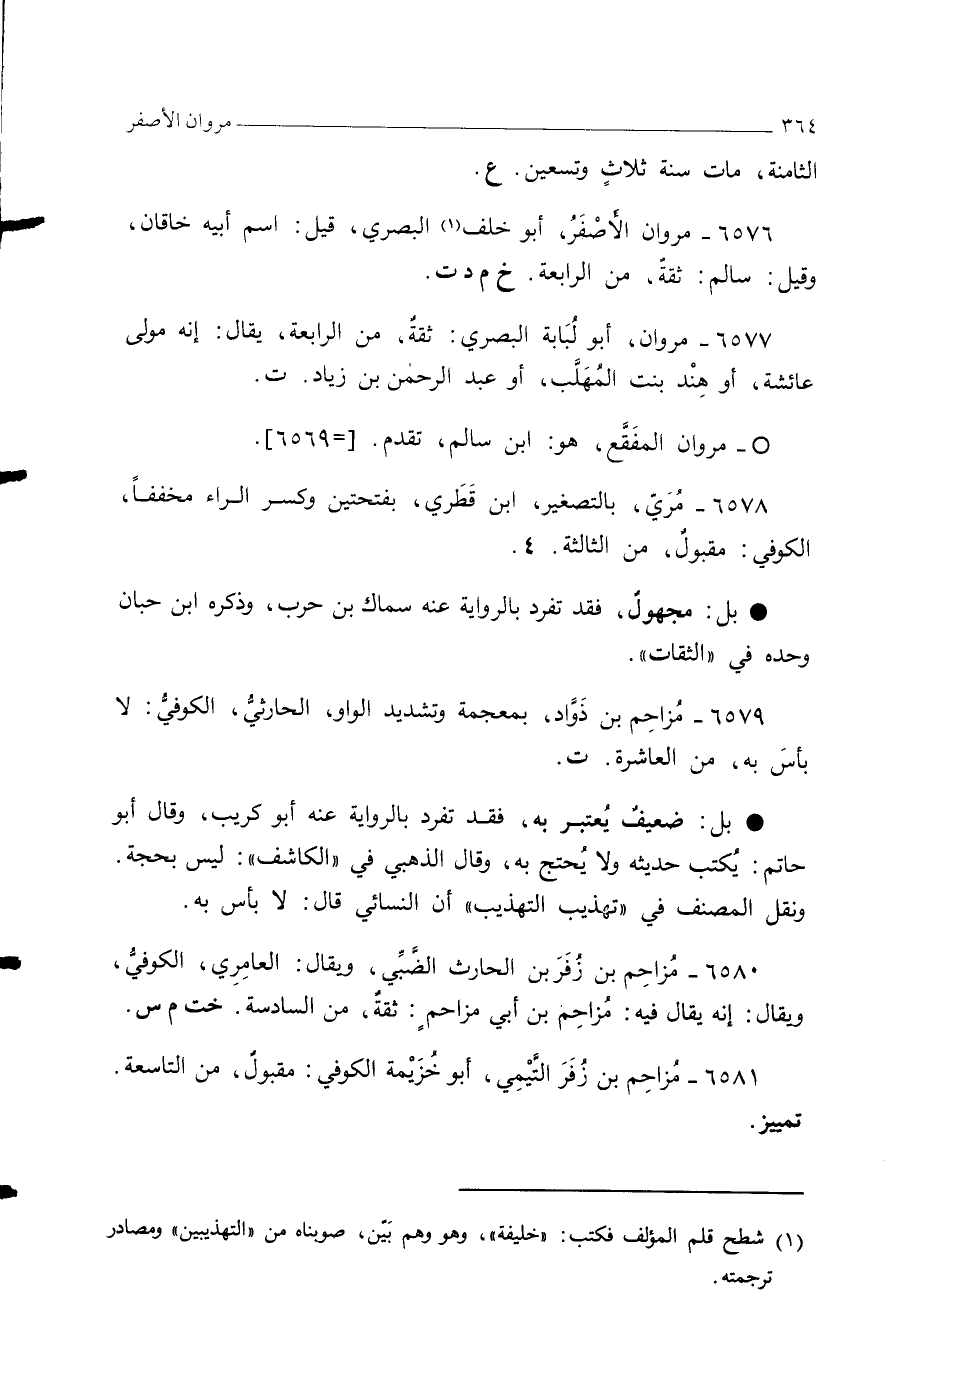 ٣٦٤ مروان الأصفر
الثامنة، مات سنة ثلاثٍ وتسعين. ع.
٦٥٧٦ ـ مروان الأَصْفَرُ، أبو خلف(١) البصري، قيل: اسم أبيه خاقان،
وقيل: سالم: ثقةٌ، من الرابعة. خ م د ت.
٦٥٧٧ ـ مروان، أبو لُبَابة البصري: ثقةٌ، من الرابعة، يقال: إنه مولى
عائشة، أو هِنْد بنت المُهَلَّب، أو عبد الرحمٰن بن زياد. ت.
○ ـ مروان المفَقَّع، هو: ابن سالم، تقدم. [=٦٥٦٩].
٦٥٧٨ ـ مُرَيّ، بالتصغير، ابن قَطَري، بفتحتين وكسر الراء مخففاً،
الكوفي: مقبولٌ، من الثالثة. ٤.
● بل: مجهولٌ، فقد تفرد بالرواية عنه سماك بن حرب، وذكره ابن حبان
وحده في «الثقات».
٦٥٧٩ ـ مُزاحِم بن ذَوَّاد، بمعجمة وتشديد الواو، الحارثيُّ، الكوفيُّ: لا
بأسَ به، من العاشرة. ت.
● بل: ضعيفٌ يُعتبر به، فقد تفرد بالرواية عنه أبو كريب، وقال أبو
حاتم: يُكتب حديثه ولا يُحتج به، وقال الذهبي في «الكاشف»: ليس بحجة.
ونقل المصنف في «تهذيب التهذيب» أن النسائي قال: لا بأس به.
٦٥٨٠ ـ مُزاحِم بن زُفَرَ بن الحارث الضَّبِّي، ويقال: العامِري، الكوفيُّ،
ويقال: إنه يقال فيه: مُزاحِم بن أبي مزاحم: ثقةٌ، من السادسة. خت م س.
٦٥٨١ ـ مُزاحِم بن زُفَرَ التَّيْمِي، أبو خُزَيْمة الكوفي: مقبولٌ، من التاسعة.
تمييز.
(١) شطح قلم المؤلف فكتب: «خليفة»، وهو وهم بَيّن، صوبناه من «التهذيبين» ومصادر
ترجمته.